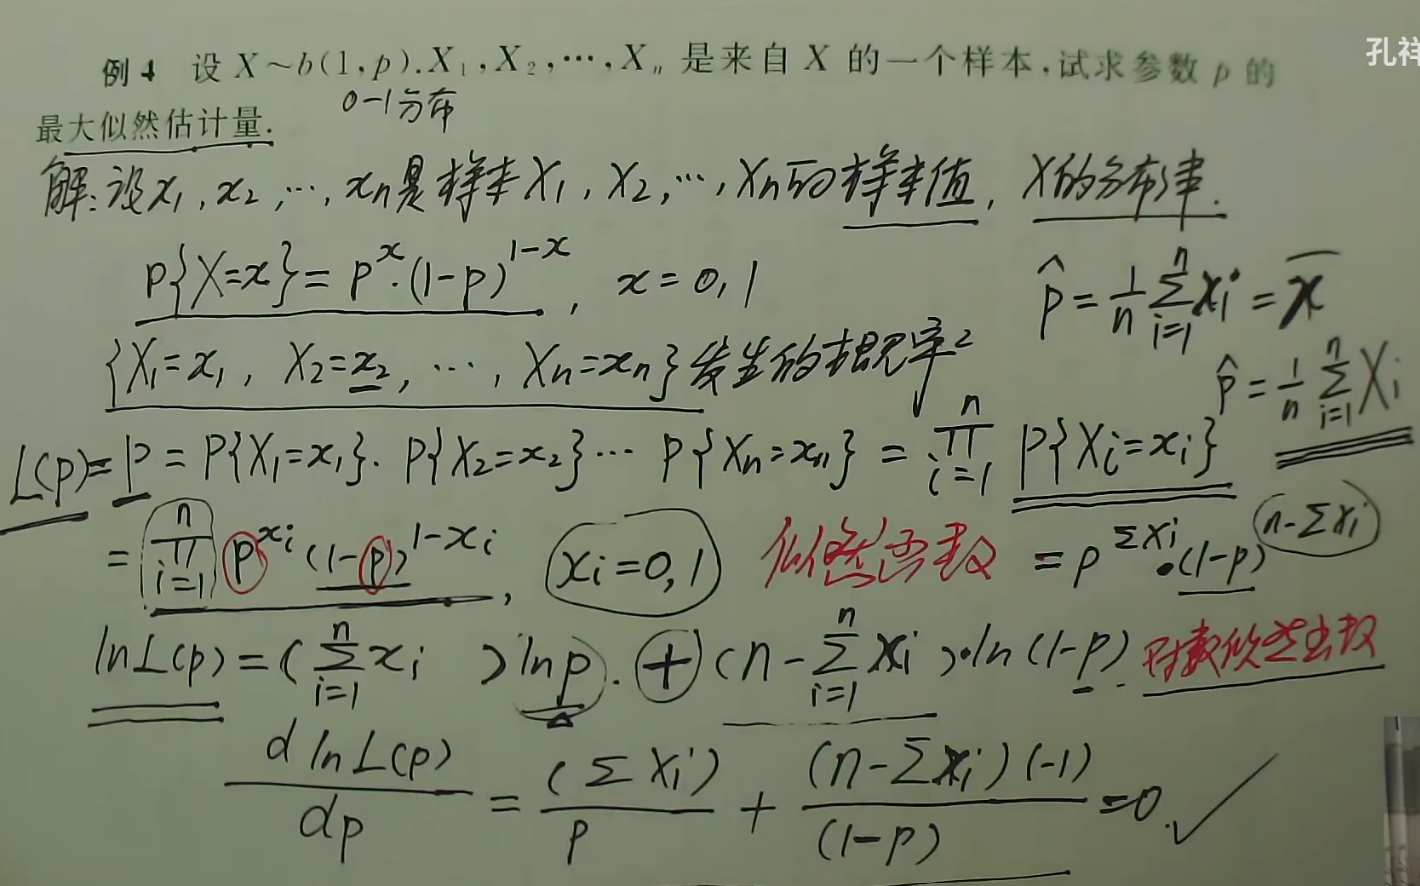 孔祥
例4 设 X~b(1,p).X₁,X₂,…,Xₙ 是来自 X 的一个样本,试求参数 p 的
0-1分布
最大似然估计量.
解:设x₁,x₂,…,xₙ是样本X₁,X₂,…,Xₙ的样本值,X的分布律.
P{X=x}=p^x·(1-p)^{1-x}, x=0,1
p̂=1/n ∑_{i=1}^{n} xᵢ=x̄
{X₁=x₁, X₂=x₂, …, Xₙ=xₙ}发生的概率
p̂=1/n ∑_{i=1}^{n} Xᵢ
L(p)=P=P{X₁=x₁}·P{X₂=x₂}…P{Xₙ=xₙ}=∏_{i=1}^{n} P{Xᵢ=xᵢ}
=∏_{i=1}^{n} p^{xᵢ}(1-p)^{1-xᵢ}, xᵢ=0,1 似然函数 =p^{∑xᵢ}·(1-p)^{n-∑xᵢ}
lnL(p)=(∑_{i=1}^{n} xᵢ)lnp.+(n-∑_{i=1}^{n} xᵢ)·ln(1-p). 对数似然函数
d lnL(p)/dp=(∑xᵢ)/p+(n-∑xᵢ)(-1)/(1-p)=0.✓